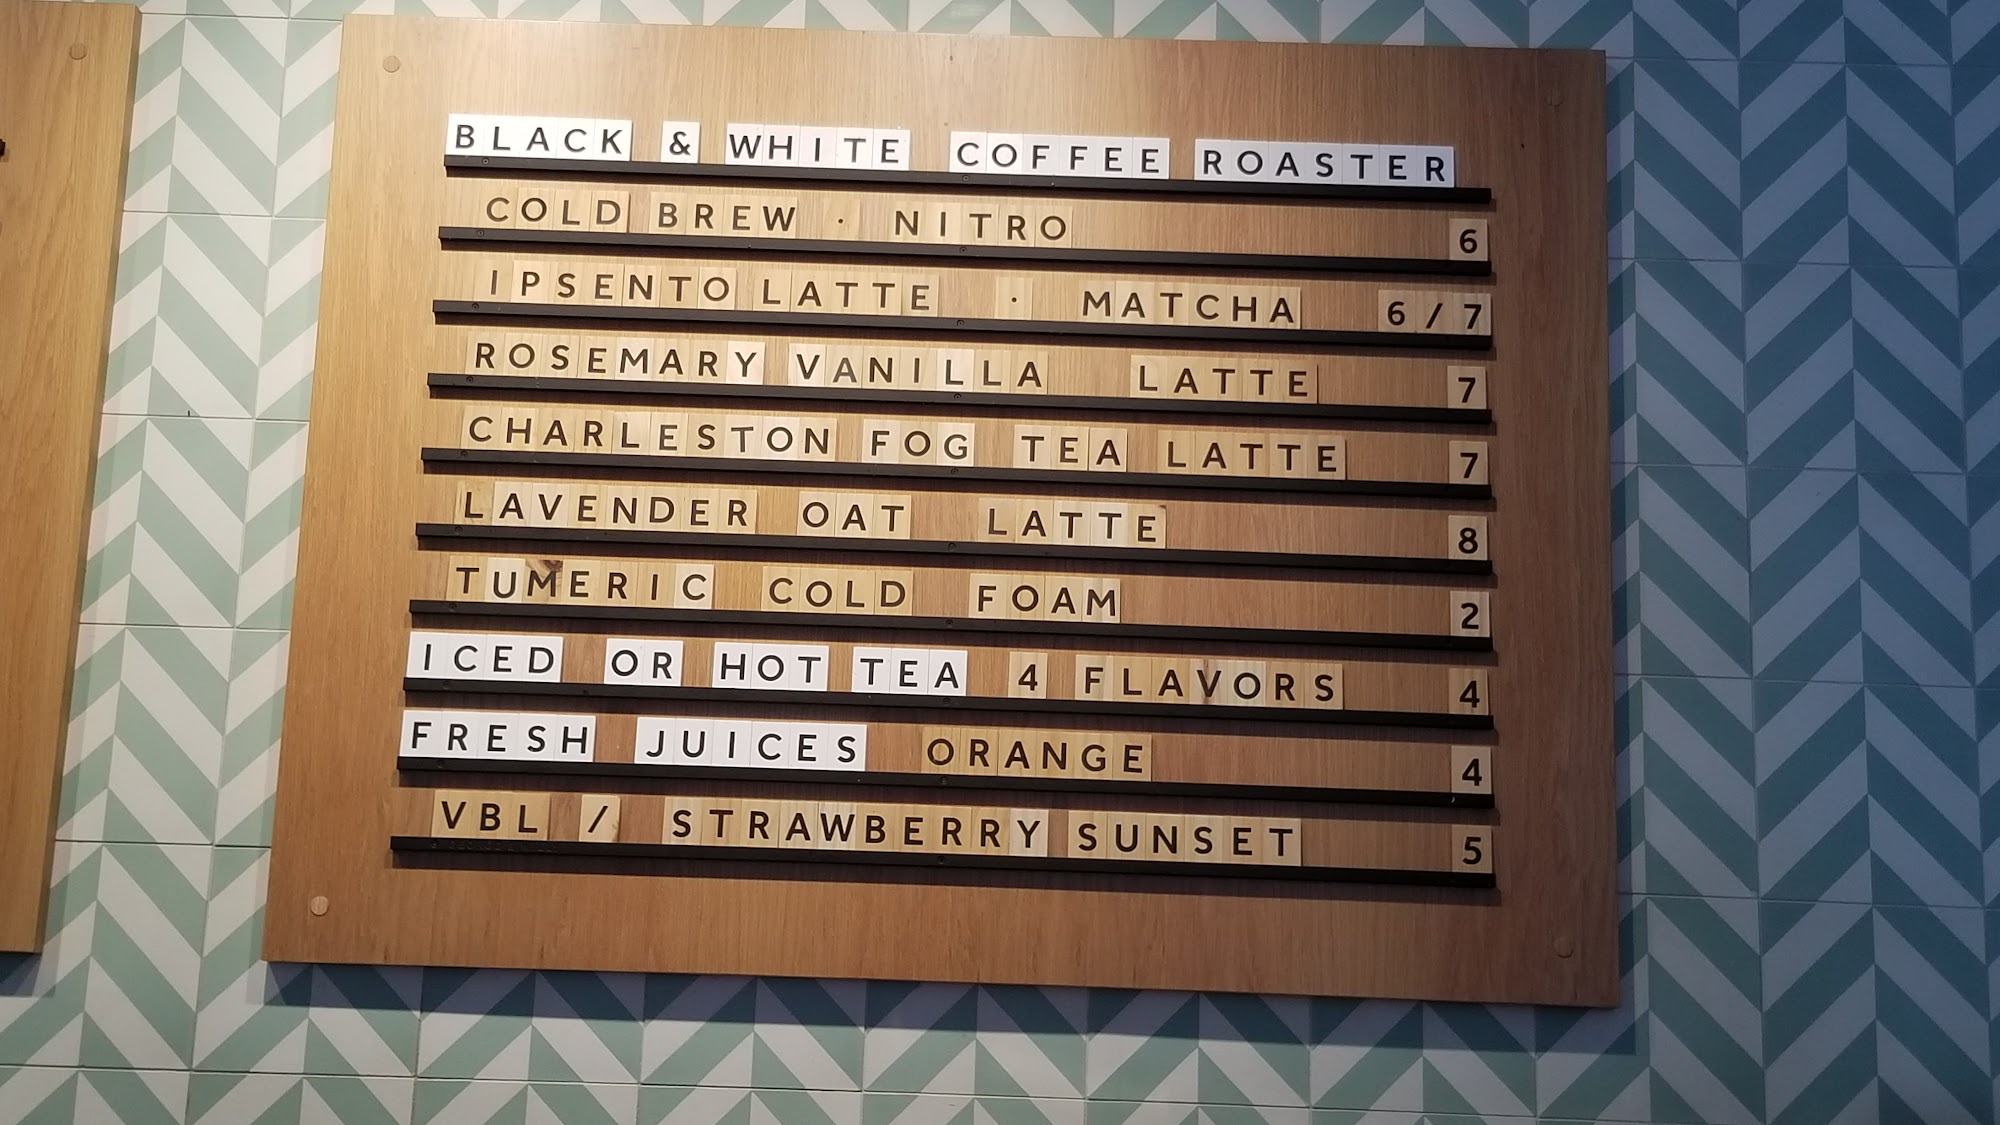 BLACK & WHITE COFFEE ROASTER
COLD BREW · NITRO 6
IPSENTO LATTE · MATCHA 6/7
ROSEMARY VANILLA LATTE 7
CHARLESTON FOG TEA LATTE 7
LAVENDER OAT LATTE 8
TUMERIC COLD FOAM 2
ICED OR HOT TEA 4 FLAVORS 4
FRESH JUICES ORANGE 4
VBL / STRAWBERRY SUNSET 5